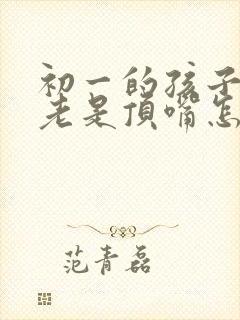 初一的孩子
老是顶嘴怎
范青磊